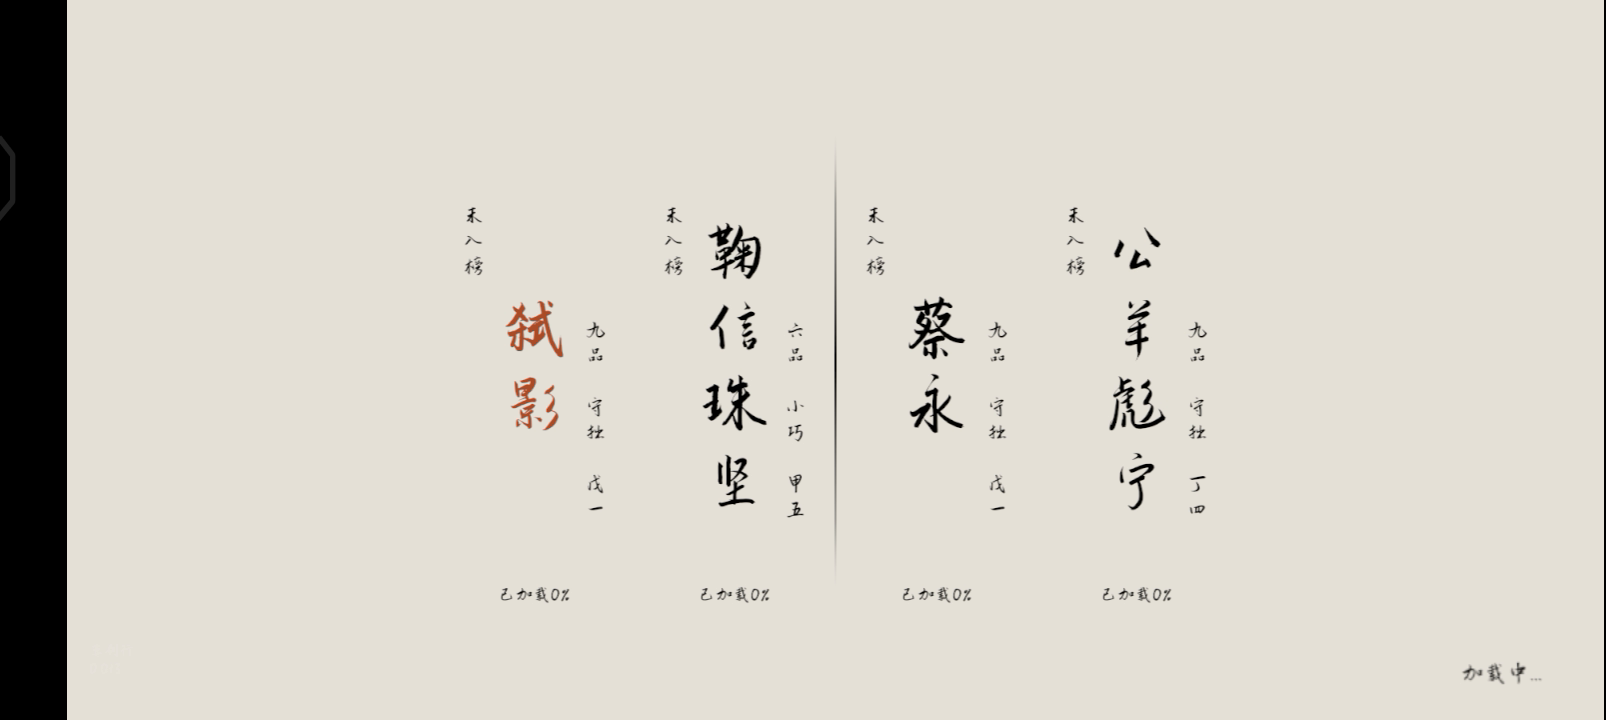 未入榜
弑影
九品 守拙 戊一
已加载0%
未入榜
鞠信珠坚
六品 小巧 甲五
已加载0%
未入榜
蔡永
九品 守拙 戊一
已加载0%
未入榜
公羊彪宁
九品 守拙 丁四
已加载0%
加载中...